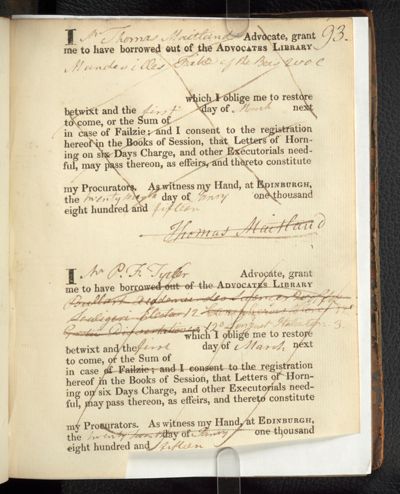 93.
I Mr Thomas Maitland Advocate, grant
me to have borrowed out of the ADVOCATES LIBRARY
Mandevilles Fable of the Bees 2 vol
which I oblige me to restore
betwixt and the first day of March next
to come, or the Sum of
in case of Failzie; and I consent to the registration
hereof in the Books of Session, that Letters of Horn-
ing on six Days Charge, and other Executorials need-
ful, may pass thereon, as effeirs, and thereto constitute
my Procurators. As witness my Hand, at EDINBURGH,
the twenty day of Janry one thousand
eight hundred and fifteen
Thomas Maitland
I Mr P. F. Tytler Advocate, grant
me to have borrowed out of the ADVOCATES LIBRARY
which I oblige me to restore
betwixt and the first day of March, next
to come, or the Sum of
in case of Failzie; and I consent to the registration
hereof in the Books of Session, that Letters of Horn-
ing on six Days Charge, and other Executorials need-
ful, may pass thereon, as effeirs, and thereto constitute
my Procurators. As witness my Hand, at EDINBURGH,
the twenty day of Janry one thousand
eight hundred and fifteen